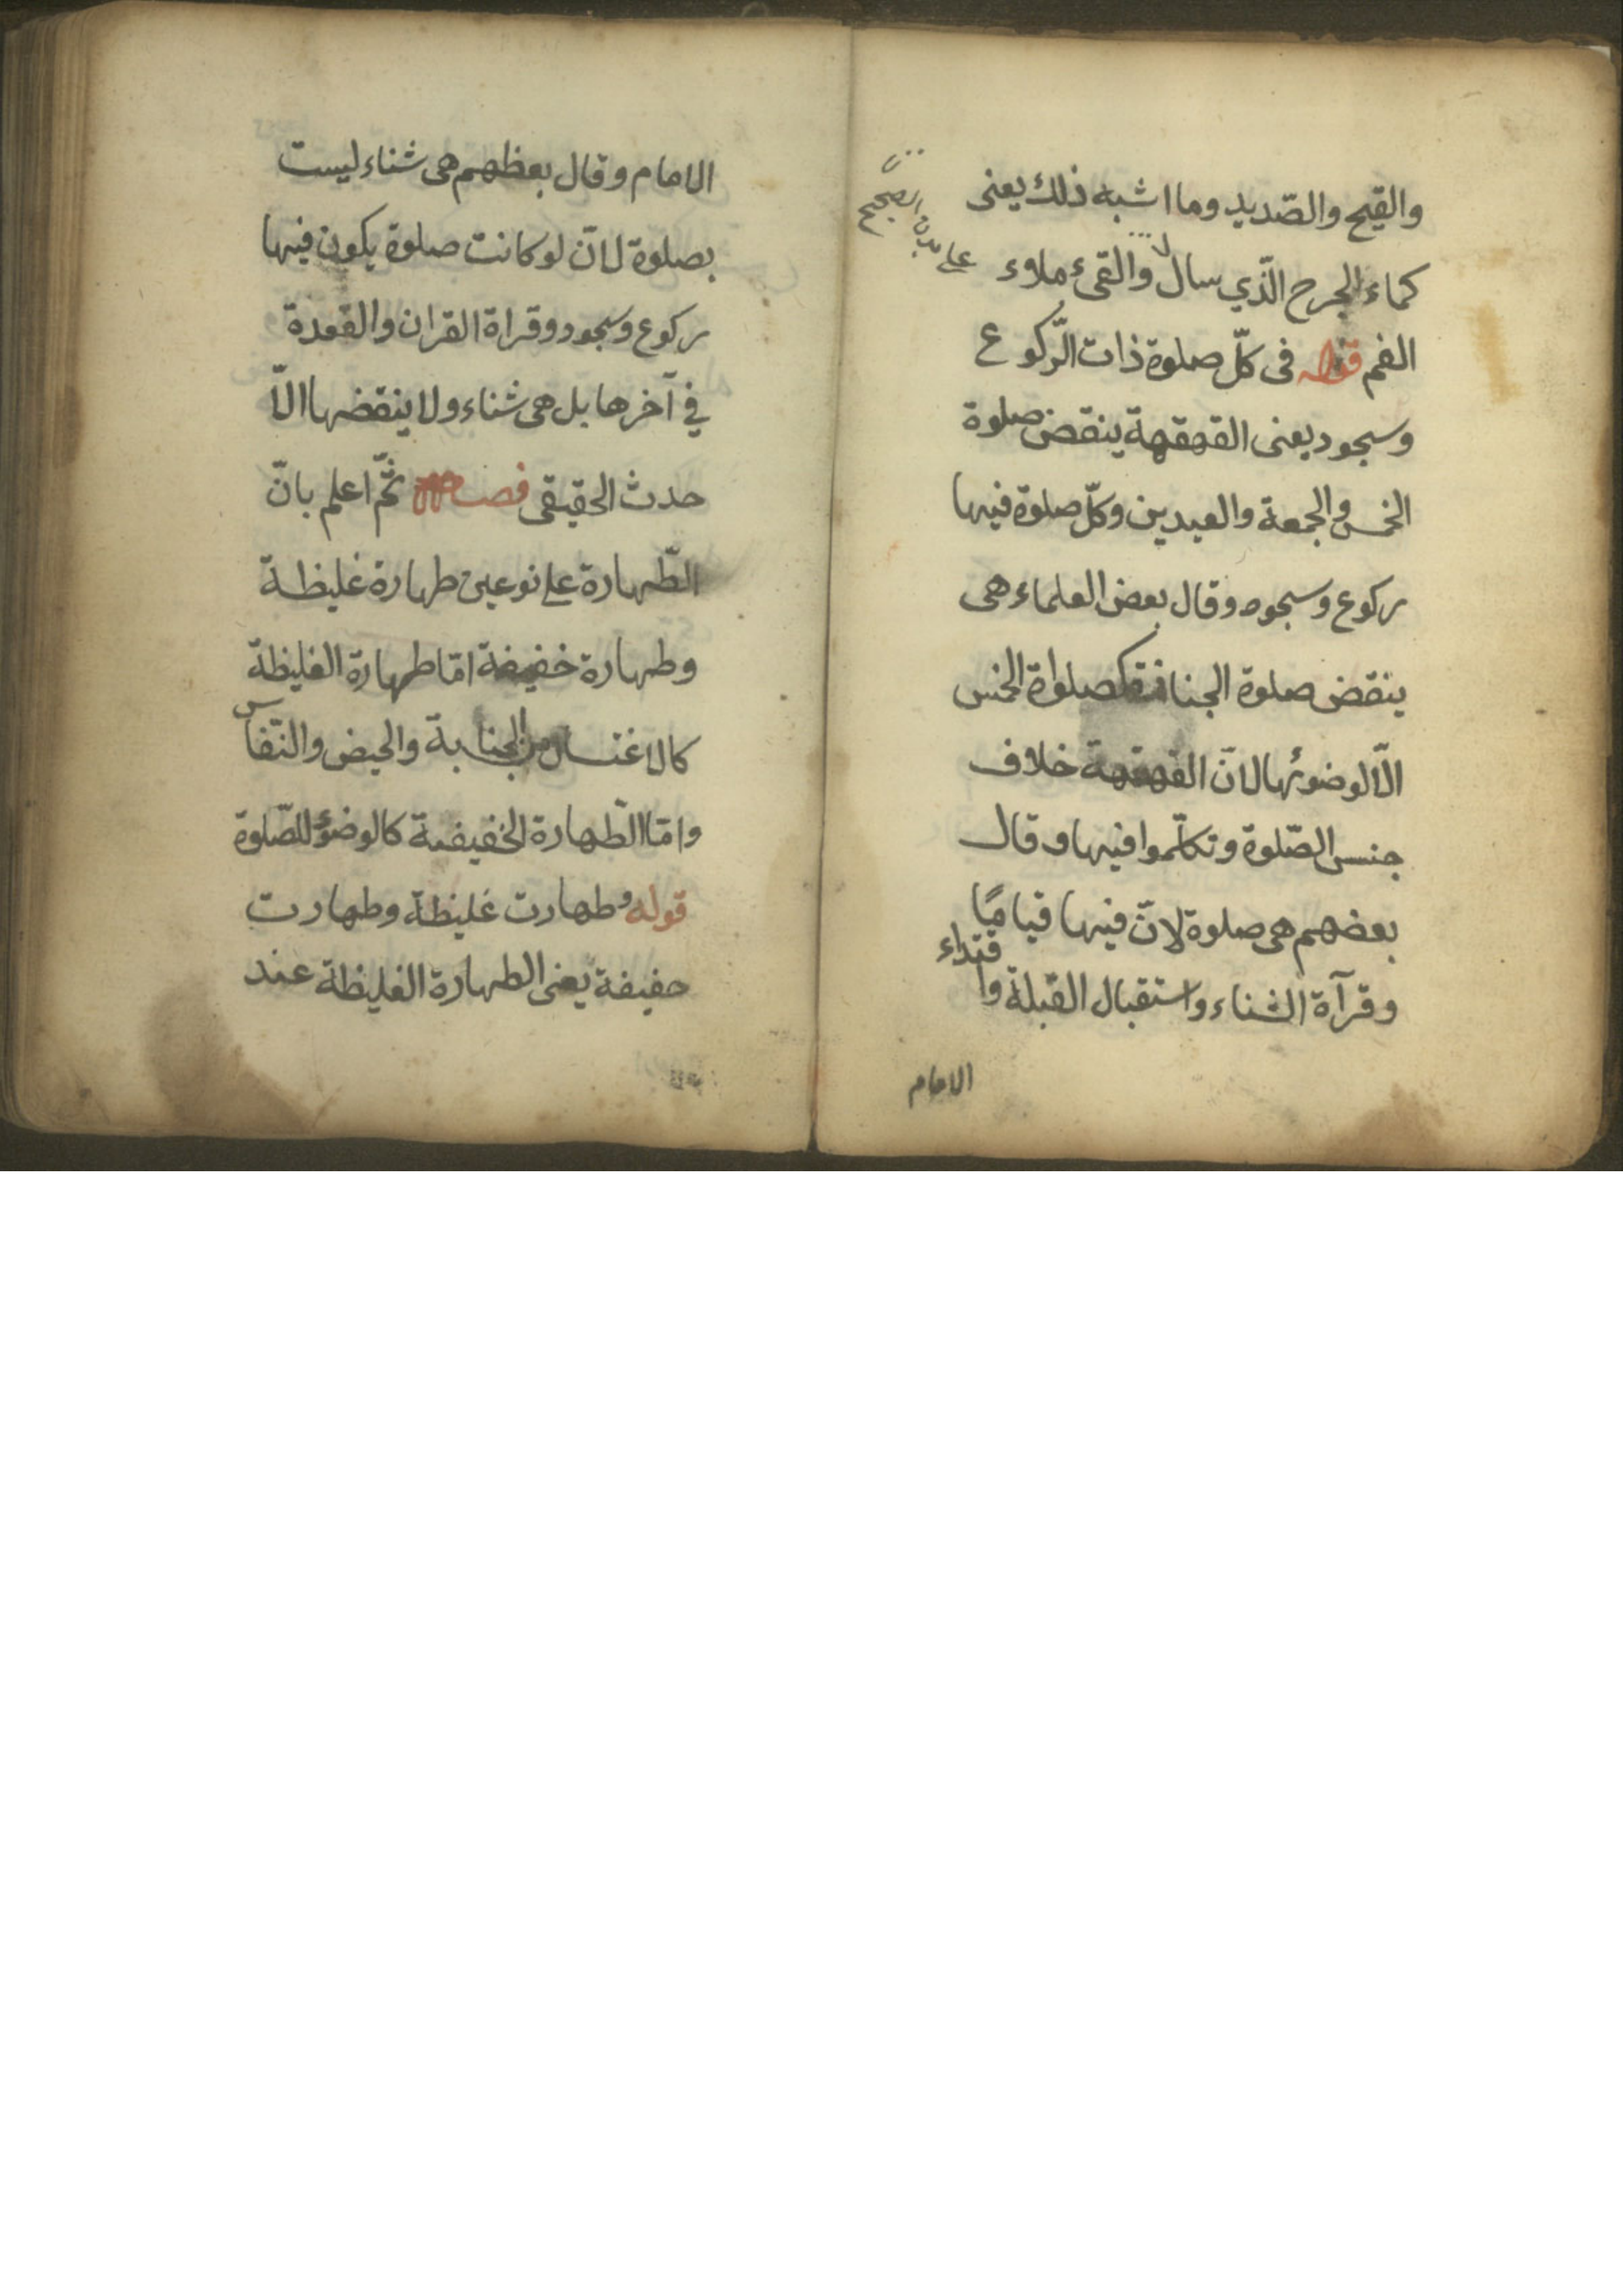 والقيح والصّديد وما اشبه ذلك يعنى
كماء الجرح الّذي سال لا والقئ ملاوء
على بدن الصحيح
الفم قوله فى كلّ صلوة ذات الرّكوع
وسجود يعنى القهقهة ينقض صلوة
الخمس والجمعة والعيدين وكلّ صلوة فيها
ركوع وسجود وقال بعض العلماء هى
ينقض صلوة كصلواة الخمس
الّا لوضوئها لانّ القهقهة خلاف
جنس الصّلوة وتكلّموا فيها وقال
بعضهم هى صلوة لانّ فيها قيامًا
وقرآة الثناء واستقبال القبلة واقتداء
الامام
الامام وقال بعظهم هى شناء ليست
بصلوة لانّ لو كانت صلوة يكون فيها
ركوع وسجود وقراة القران والقعدة
في آخرها بل هى شناء ولا ينقضها الّا
حدث الحقيقى فصل ثمّ اعلم بانّ
الطّهارة على نوعين طهارة غليظة
وطهارة خفيفة امّا طهارة الغليظة
كالاغتسال من الجنابة والحيض والنّفاس
وامّا الطّهارة الخفيفة كالوضؤ للصّلوة
قوله وطهارت غليظة وطهارت
حفيفة يعنى الطهارة الغليظة عند